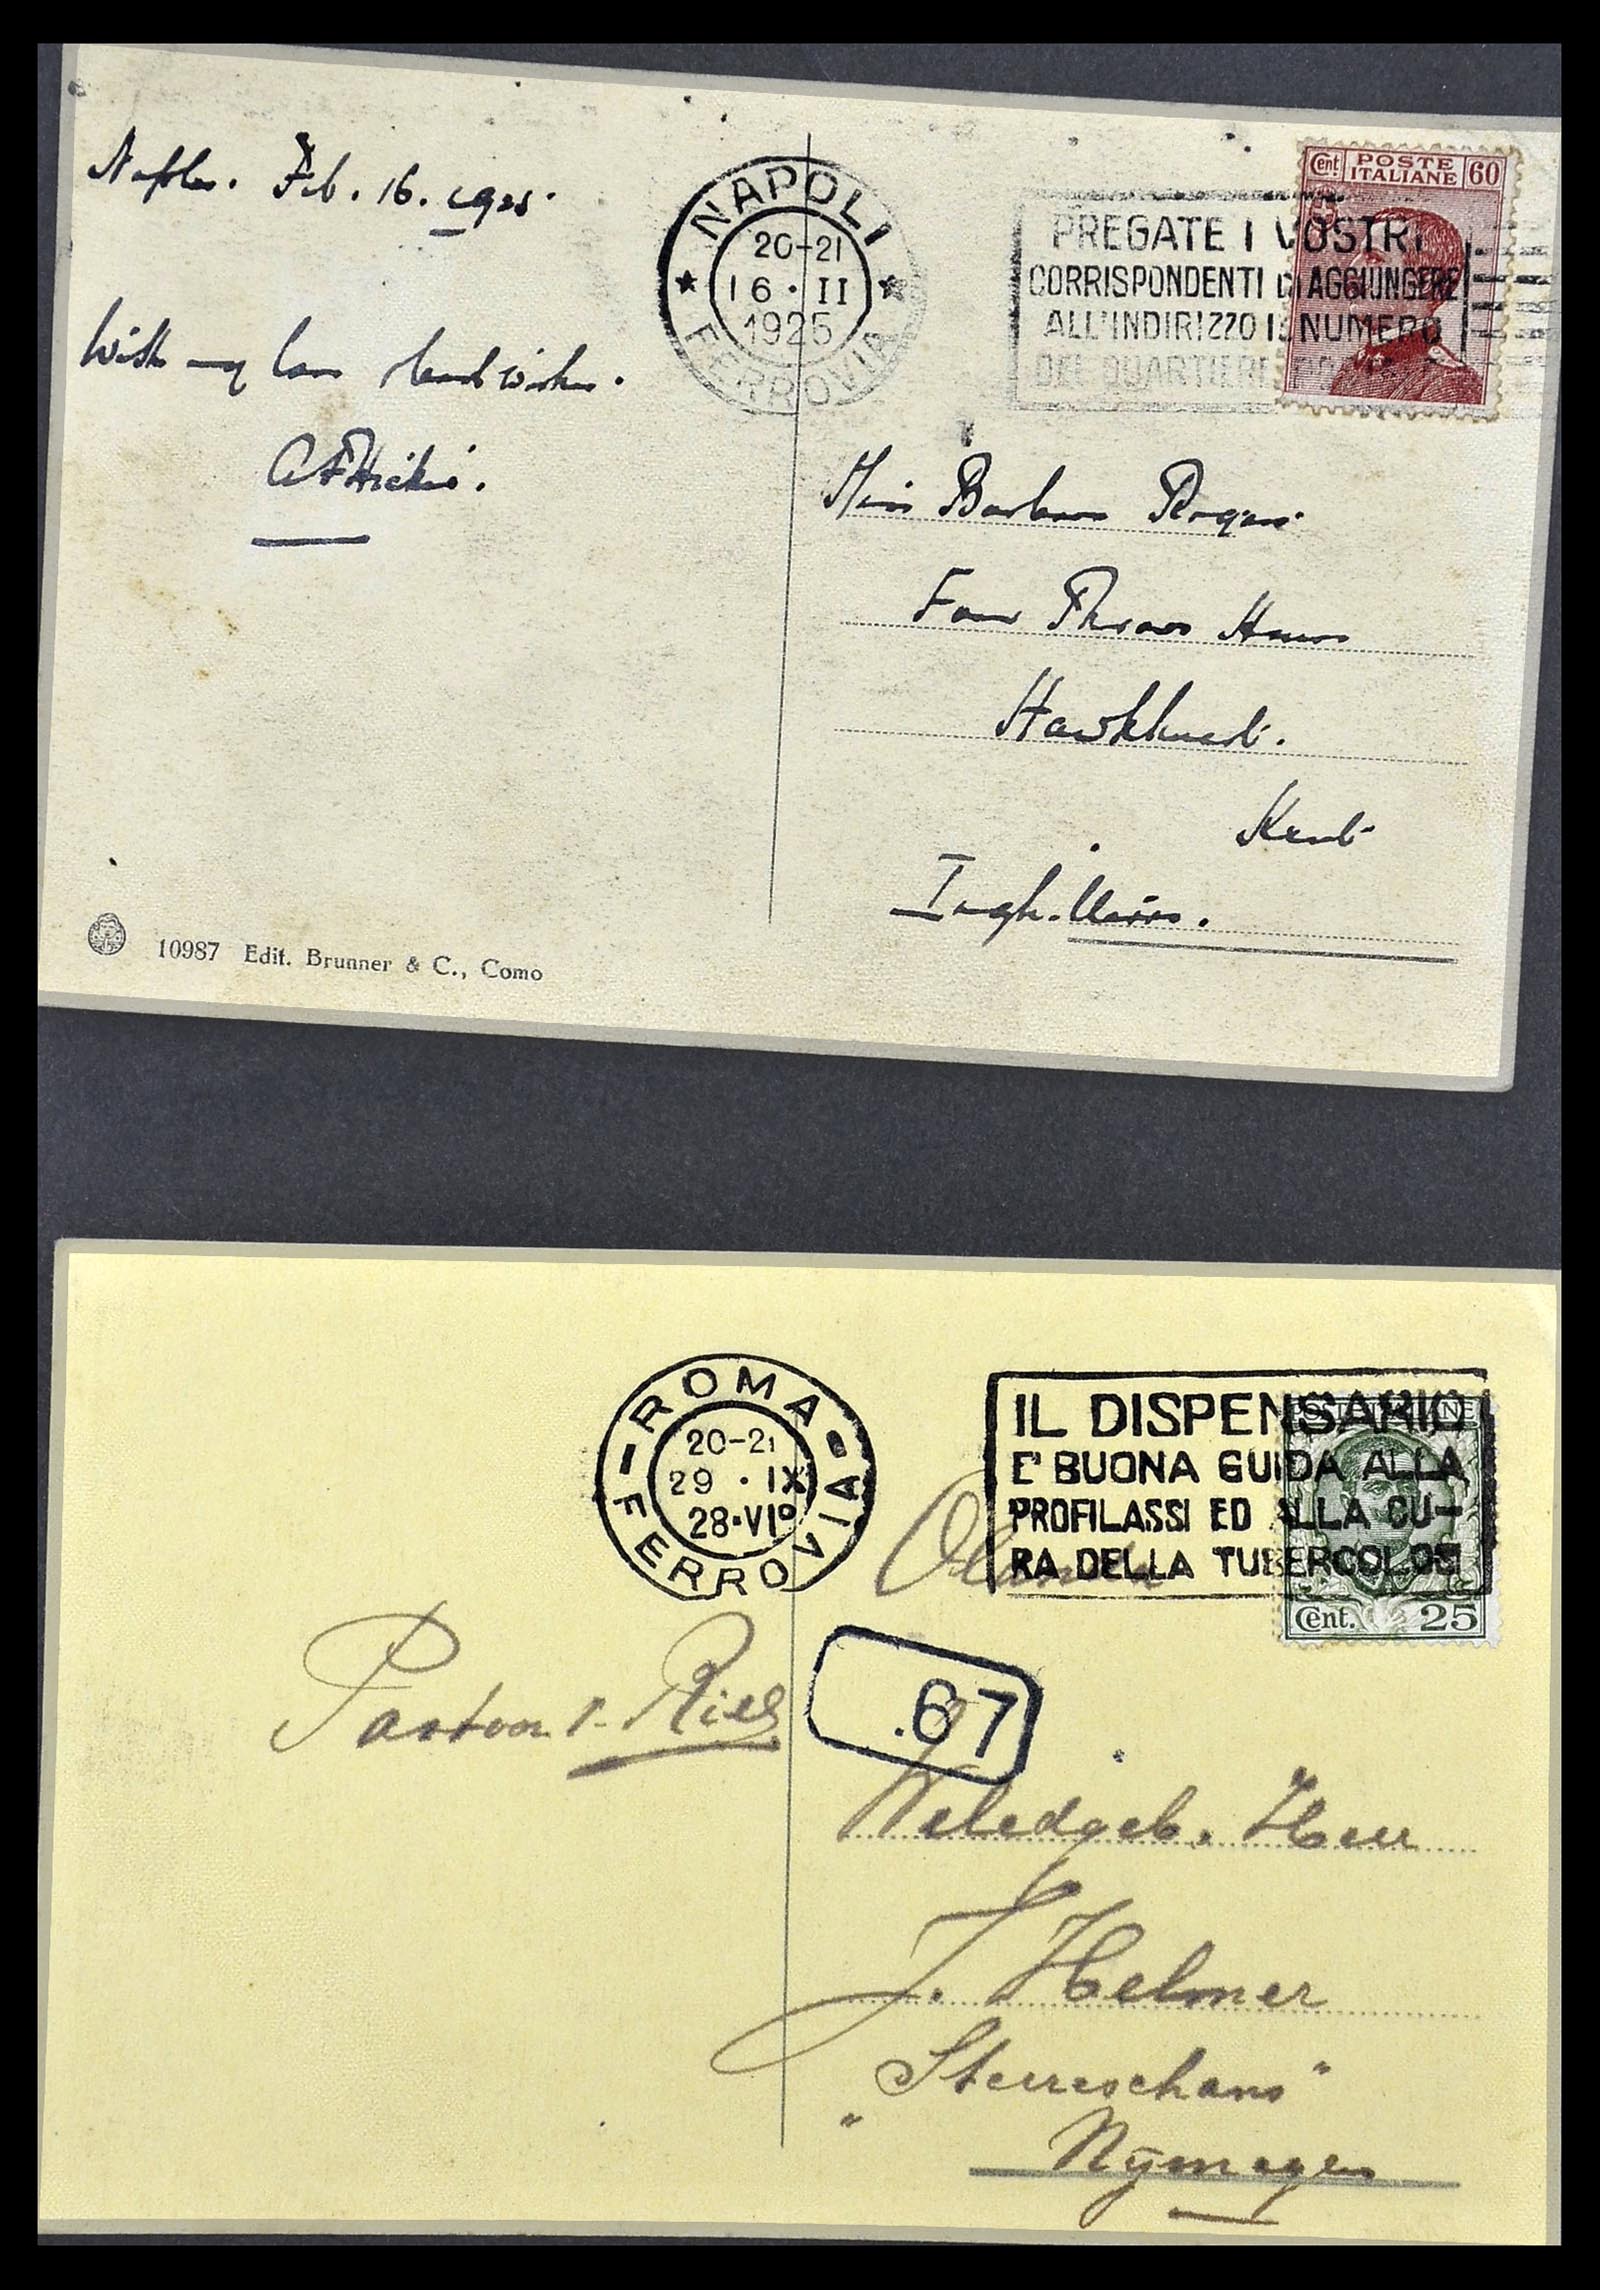 Naples. Feb. 16. 1925.
With my love & best wishes.
A F Hickie.
10987 Edit. Brunner & C., Como
NAPOLI
20-21
16 • II
1925
FERROVIA
PREGATE I VOSTRI
CORRISPONDENTI DI AGGIUNGERE
ALL'INDIRIZZO IL NUMERO
DEL QUARTIERE POSTALE
Cent POSTE ITALIANE 60
Miss Barbara Rogers
Four Throws House
Hawkhurst.
Kent
Inghilterra.
ROMA
20-21
29 • IX
28•VIº
FERROVIA
IL DISPENSARIO
E' BUONA GUIDA ALLA
PROFILASSI ED ALLA CU-
RA DELLA TUBERCOLOSI
POSTE ITALIANE
Cent. 25
Olanda
Pastoor v. Riel
.67
Weledgeb. Heer
J. Helmer
"Sterreschans"
Nijmegen